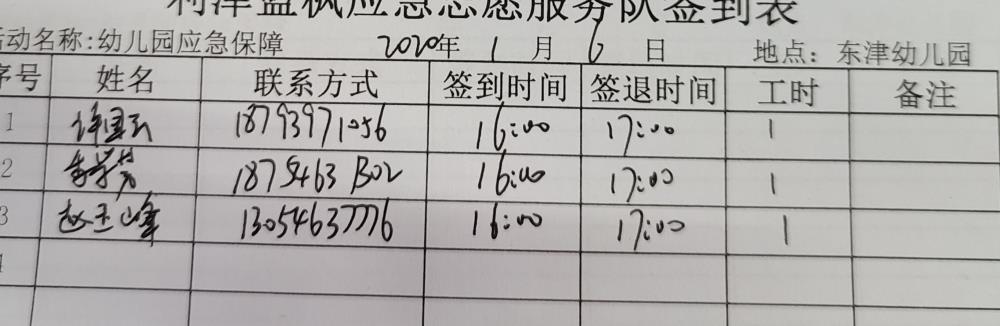 利津蓝枫应急志愿服务队签到表
活动名称:幼儿园应急保障 2020年 1 月 6 日 地点: 东津幼儿园
序号 姓名 联系方式 签到时间 签退时间 工时 备注
1 18793971056 16:00 17:00 1
2 18754631302 16:00 17:00 1
3 赵玉峰 13054637776 16:00 17:00 1
4